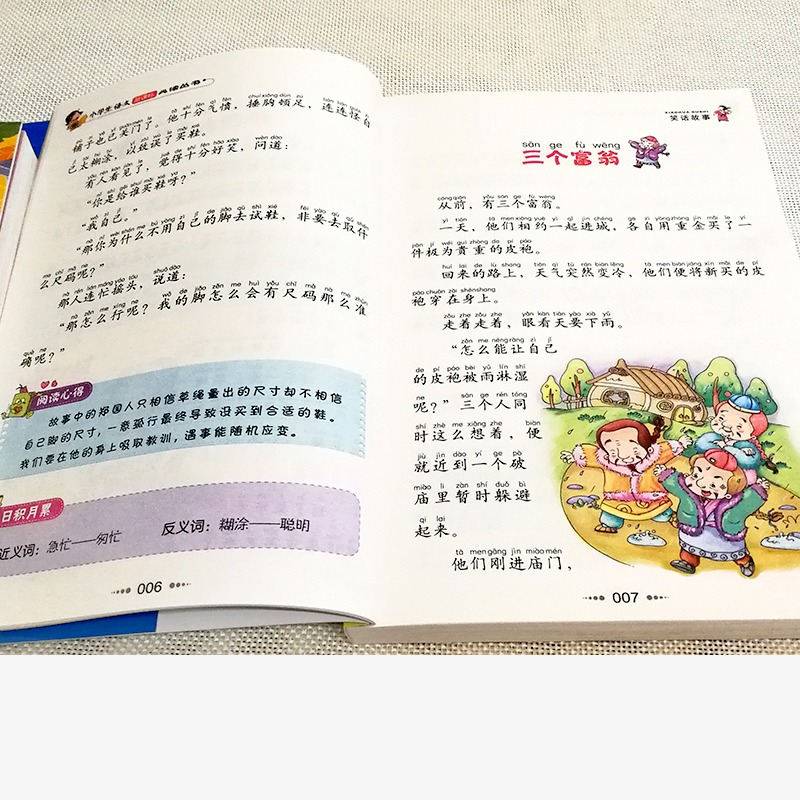 小学生语文新课标必读丛书
铺子也已关门了。他十分气愤，捶胸顿足，连连怪自
己太糊涂，以致误了买鞋。
有人看见了，觉得十分好笑，问道：
“你是给谁买鞋呀？”
“我自己。”
“那你为什么不用自己的脚去试鞋，非要去取件
么尺码呢？”
那人连忙摇头，说道：
“那怎么行呢？我的脚怎么会有尺码那么准
确呢？”
阅读心得
故事中的郑国人只相信草绳量出的尺寸却不相信
自己脚的尺寸，一意孤行最终导致没买到合适的鞋。
我们要在他的身上吸取教训，遇事能随机应变。
日积月累
近义词：急忙——匆忙
反义词：糊涂——聪明
006
XIAOHUA GUSHI
笑话故事
sān ge fù wēng
三个富翁
cóngqián yǒu sān ge fù wēng
从前，有三个富翁。
yì tiān tā men xiāng yuē yì qǐ jìn chéng gè zì yòng zhòng jīn mǎi le yí
一天，他们相约一起进城，各自用重金买了一
jiàn jí wéi guì zhòng de pí páo
件极为贵重的皮袍。
huí lái de lù shang tiān qì tū rán biàn lěng tā men biàn jiāng xīn mǎi de pí
回来的路上，天气突然变冷，他们便将新买的皮
páo chuān zài shēn shang
袍穿在身上。
zǒu zhe zǒu zhe yǎn kàn tiān yào xià yǔ
走着走着，眼看天要下雨。
zěn me néng ràng zì jǐ
“怎么能让自己
de pí páo bèi yǔ lín shī
的皮袍被雨淋湿
ne sān ge rén tóng
呢？”三个人同
shí zhè me xiǎng zhe biàn
时这么想着，便
jiù jìn dào yí ge pò
就近到一个破
miào li zàn shí duǒ bì
庙里暂时躲避
qǐ lai
起来。
tā men gāng jìn miào mén
他们刚进庙门，
007